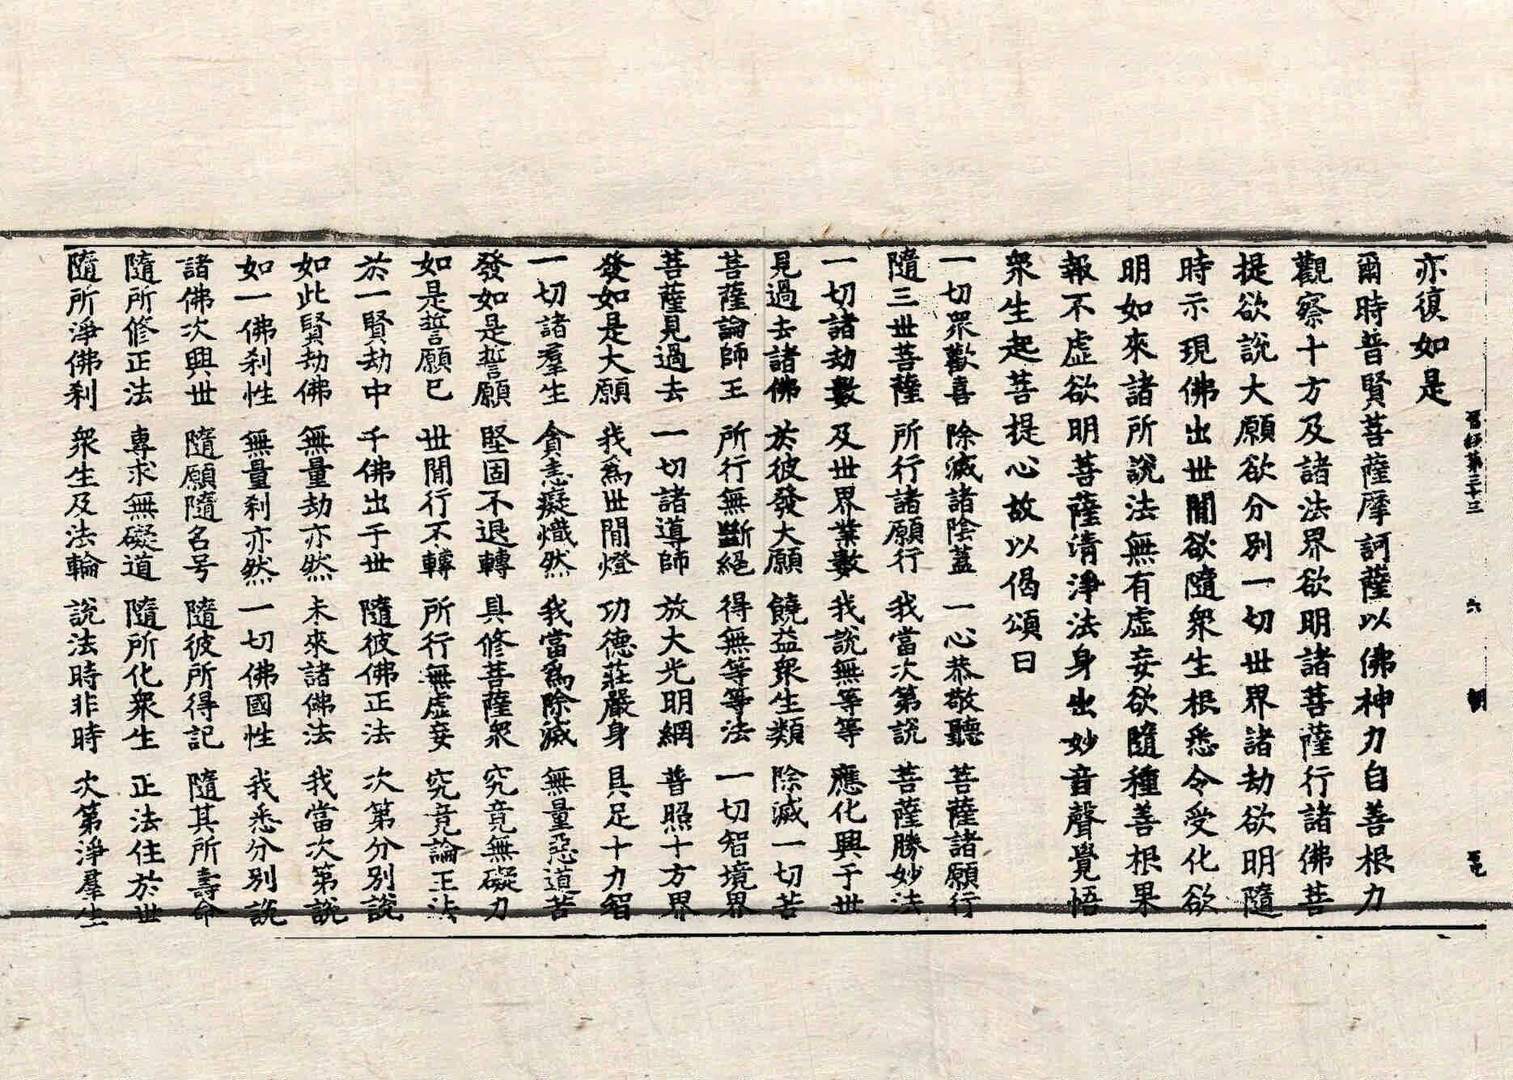 亦復如是
爾時普賢菩薩摩訶薩以佛神力自善根力
觀察十方及諸法界欲明諸菩薩行諸佛菩
提欲說大願欲分別一切世界諸劫欲明隨
時示現佛出世間欲隨衆生根悉令受化欲
明如來諸所說法無有虛妄欲隨種善根果
報不虛欲明菩薩清淨法身出妙音聲覺悟
衆生起菩提心故以偈頌曰
一切眾歡喜 除滅諸陰蓋 一心恭敬聽 菩薩諸願行
隨三世菩薩 所行諸願行 我當次第説 菩薩勝妙法
一切諸劫數 及世界業數 我說無等等 應化興于世
見過去諸佛 於彼發大願 饒益衆生類 除滅一切苦
菩薩論師王 所行無斷絕 得無等等法 一切智境界
菩薩見過去 一切諸導師 放大光明網 普照十方界
發如是大願 我爲世間燈 功德莊嚴身 具足十力智
一切諸羣生 貪恚癡熾然 我當爲除滅 無量惡道苦
發如是誓願 堅固不退轉 具修菩薩衆 究竟無礙力
如是誓願已 世間行不轉 所行無虛妄 究竟論王法
於一賢劫中 千佛出于世 隨彼佛正法 次第分別説
如此賢劫佛 無量劫亦然 未來諸佛法 我當次第說
如一佛刹性 無量刹亦然 一切佛國性 我悉分別說
諸佛次興世 隨願隨名号 隨彼所得記 隨其所壽命
隨所修正法 專求無礙道 隨所化衆生 正法住於世
隨所淨佛刹 衆生及法輪 說法時非時 次第淨羣生
第三十三
六